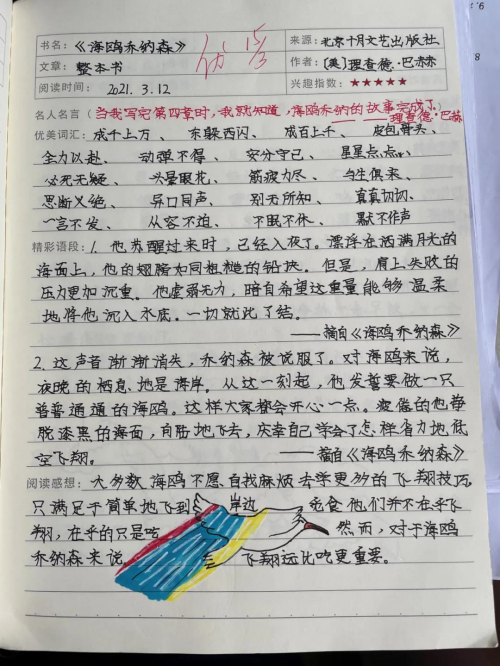 书名：《海鸥乔纳森》
来源：北京十月文艺出版社
文章：整本书
作者：[美]理查德·巴赫
阅读时间：2021.3.12
兴趣指数：★★★★★
名人名言（当我写完第四章时，我就知道，海鸥乔纳的故事完成了
——理查德·巴赫
优美词汇：成千上万、东躲西闪、成百上千、皮包骨头、
全力以赴、动弹不得、安分守己、星星点点、
必死无疑、头晕眼花、筋疲力尽、与生俱来、
恩断义绝、异口同声、别无所知、真真切切、
一言不发、从容不迫、不眠不休、默不作声
精彩语段：1.他苏醒过来时，已经入夜了。漂浮在洒满月光的
海面上，他的翅膀如同粗糙的铅块。但是，肩上失败的
压力更加沉重。他虚弱无力，暗自希望这重量能够温柔
地将他沉入水底。一切就此了结。
——摘自《海鸥乔纳森》
2.这声音渐渐消失，乔纳森被说服了。对海鸥来说，
夜晚的栖息地是海岸。从这一刻起，他发誓要做一只
普普通通的海鸥。这样大家都会开心一点。疲倦的他挣
脱漆黑的海面，向陆地飞去，庆幸自己学会了怎样省力地低
空飞翔。——摘自《海鸥乔纳森》
阅读感想：大多数海鸥不愿自找麻烦去学更多的飞翔技巧
只满足于简单地飞到岸边觅食他们并不在乎飞
翔，在乎的只是吃然而，对于海鸥
乔纳森来说飞翔远比吃更重要。